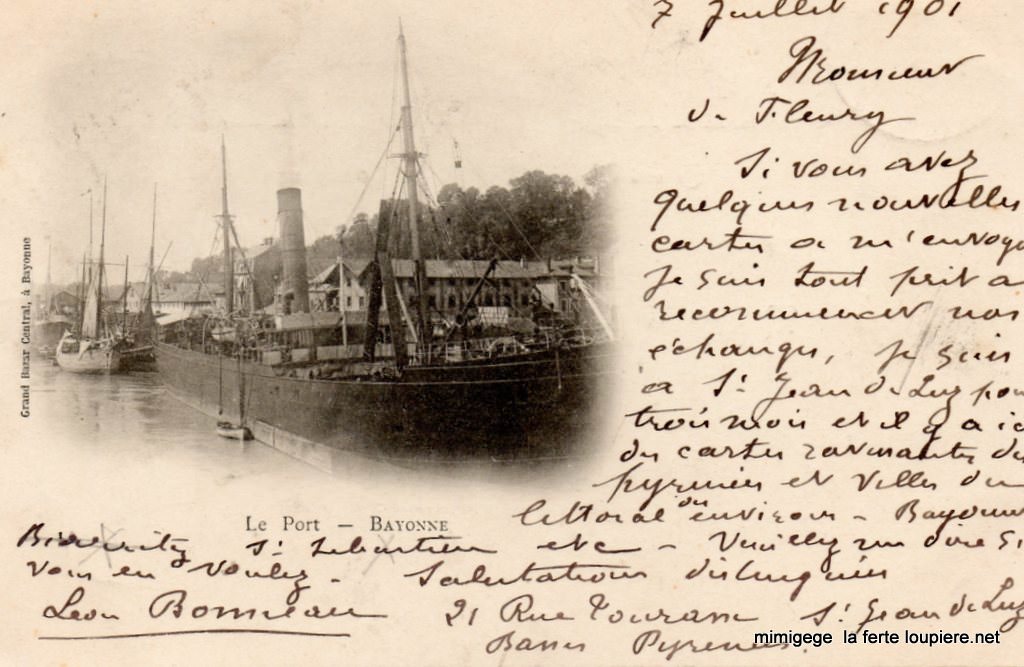 7 Juillet 1901
Monsieur
de Fleury
Si vous avez
quelques nouvelles
cartes a m'envoye
Je suis tout prit a
recommencer nos
échanges, Je suis
a St Jean de Luz pou
trois mois et il y a ic
des cartes ravissantes de
pyrenées et villes du
littoral des environs - Bayonne
Biarritz St Sebastien etc - Veuillez me dire Si
vous en voulez - Salutations distinguées
Léon Bonneau 21 Rue St Jean de Luz
Basses Pyrenées
Le Port - BAYONNE
Grand Bazar Central, à Bayonne
mimigege la ferte loupiere.net